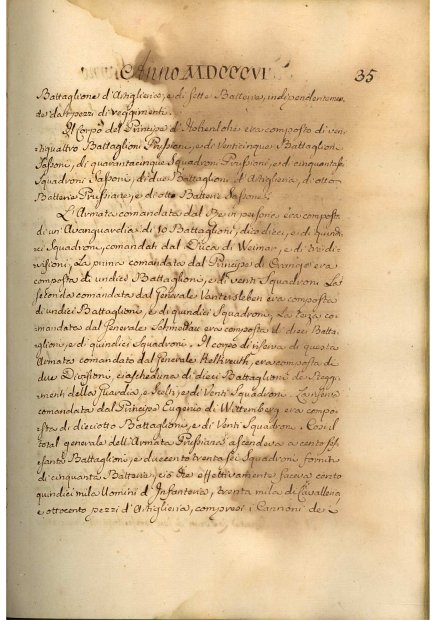 Anno MDCCCVI 35
Battaglione d'Artiglieria, e di sette Batterie, indipendentemen-
te da' pezzi di reggimenti.
Il Corpo del Principe d'Hohenlohe era composto di ven-
tiquattro Battaglioni Prussiani, e di Venticinque Battaglioni
Sassoni, di quarantacinque Squadroni Prussiani, e di cinquantasei
Squadroni Sassoni, di due Battaglioni d'Artiglieria, di otto
Batterie Prussiane, e di otto Batterie Sassone.
L'Armata comandata dal Re in persona era composta
di un'Avanguardia di 10 Battaglioni, di e di quindi-
ci Squadroni, comandati dal Duca di Weimar, e di tre di-
visioni, La prima comandata dal Principe d'Oranges era
composta di undici Battaglioni, e di venti Squadroni La
seconda comandata dal Generale Vanterсleben era composta
di undici Battaglioni, e di quindici Squadroni, La terza co-
mandata dal Generale Schmettau era composta di dieci Batta-
glioni, e di quindici Squadroni. Il corpo di riserva di questa
Armata comandato dal Generale Kelkreuth, era composta di
due Divisioni, ciascheduna di dieci Battaglioni de Reggi-
menti della Guardia, e Scelti, e di Venti Squadroni.
comandata dal Principe Eugenio di Wittemberg era com-
posta di dieciotto Battaglioni, e di Venti Squadroni. Così il
total generale dell'Armata Prussiana ascendeva a cento ses-
santa Battaglioni, e duecento trenta sei Squadroni forniti
di cinquanta Batterie; ciò che effettivamente faceva cento
quindici mila Uomini d'Infanteria, trenta mila di Cavalleria,
e ottocento pezzi d'Artiglieria, compresi i Cannoni de